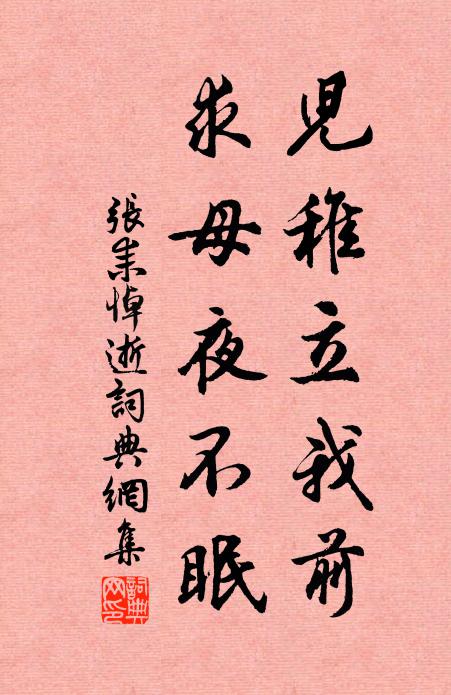 兒稚立我前
求母夜不眠
張耒悼逝詞典網集
詞典網印